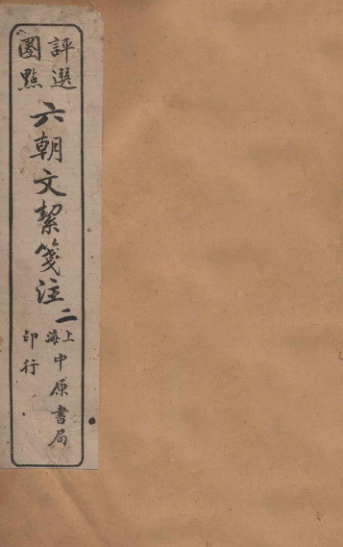 評選
圈點
六朝文絜箋注
二
上海
中原書局
印行